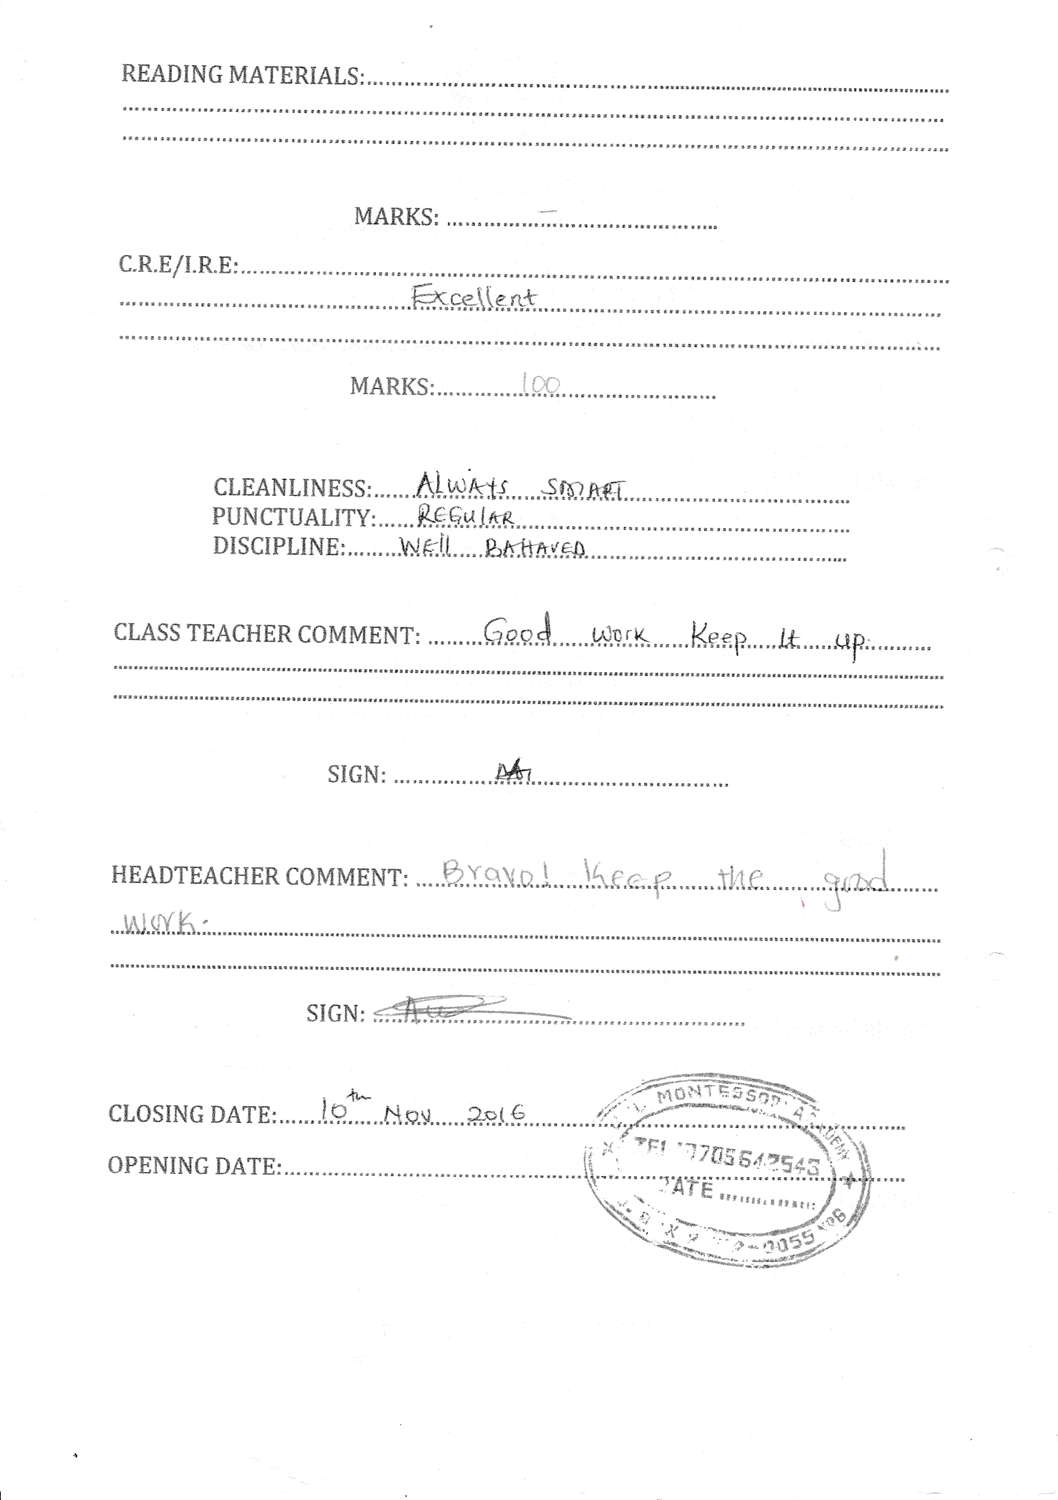 READING MATERIALS:
MARKS: –
C.R.E/I.R.E:
Excellent
MARKS: 100
CLEANLINESS: ALWAYS SMART
PUNCTUALITY: REGULAR
DISCIPLINE: WEll BAHAVED
CLASS TEACHER COMMENT: Good work Keep It up.
SIGN:
HEADTEACHER COMMENT: Bravo! Keep the good
work.
SIGN:
CLOSING DATE: 10th Nov 2016
OPENING DATE:
MONTESSORI ACADEMY
TEL
DATE